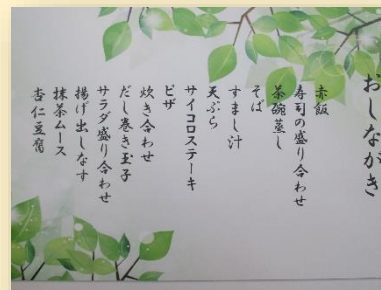 おしながき
赤飯
寿司の盛り合わせ
茶碗蒸し
そば
すまし汁
天ぷら
サイコロステーキ
ピザ
炊き合わせ
だし巻き玉子
サラダ盛り合わせ
揚げ出しなす
抹茶ムース
杏仁豆腐